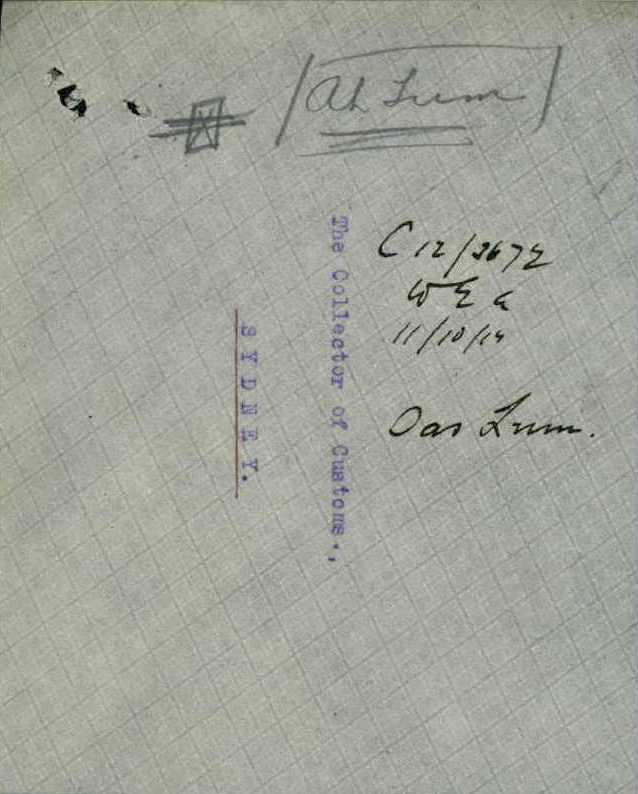 Ah Lum
The Collector of Customs.,
SYDNEY.
C 12/2672
W E G
11/10/14
Oas Lum.